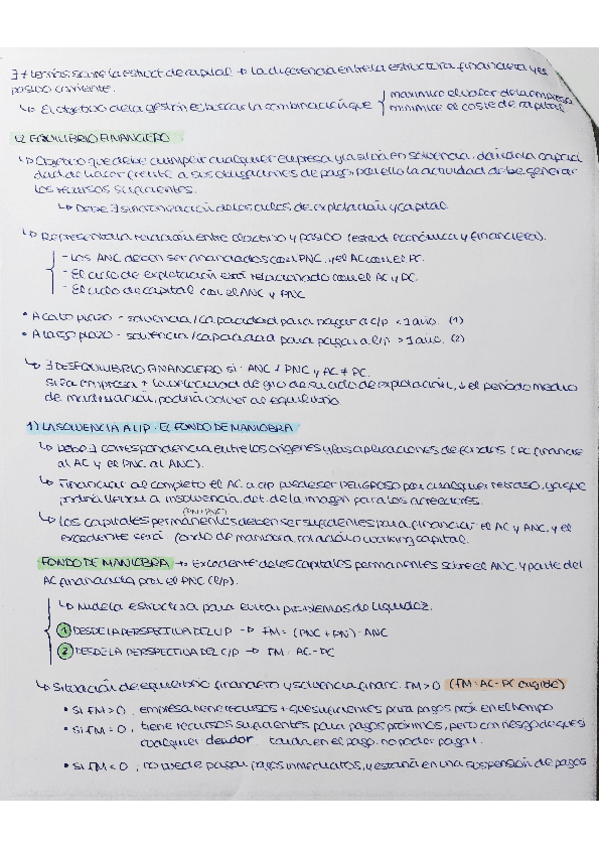 ∃ + teorías sobre la estruct de capital → La diferencia entre la estructura financiera y el
pasivo corriente.
↳ El objetivo de la gestión es buscar la combinación que { maximice el valor de la empresa
minimice el coste de capital
1.2 EQUILIBRIO FINANCIERO
↳ Objetivo que debe cumplir cualquier empresa y la sitúa en solvencia, dándola la capaci
dad de hacer frente a sus obligaciones de pago, por ello la actividad debe generar
los recursos suficientes.
↳ Debe ∃ sincronización de los ciclos de explotación y capital.
↳ Representa la relación entre el activo y pasivo (estruct económica y financiera).
- Los ANC deben ser financiados con PNC, y el AC con el PC.
- El ciclo de explotación está relacionado con el AC y PC.
- El ciclo de capital con el ANC y PNC
• A corto plazo - solvencia/capacidad para pagar a c/p < 1 año. (1)
• A largo plazo - solvencia/capacidad para pagar a l/p > 1 año. (2)
↳ ∃ DESEQUILIBRIO FINANCIERO si ANC ≠ PNC y AC ≠ PC.
Si la empresa ↑ la velocidad de giro de su ciclo de explotación, ↓ el período medio
de maduración, podría volver al equilibrio.
1) LA SOLVENCIA A L/P. EL FONDO DE MANIOBRA
↳ Debe ∃ correspondencia entre los orígenes y las aplicaciones de fondos (PC financie
al AC y el PNC al ANC).
↳ Financiar al completo el AC a c/p puede ser PELIGROSO por cualquier retraso, ya que
podría llevar a insolvencia, det. de la imagen para los acreedores.
(PN+PNC)
↳ Los capitales permanentes deben ser suficientes para financiar el AC y ANC, y el
excedente será fondo de maniobra, rotación o working capital.
FONDO DE MANIOBRA → Excedente de los capitales permanentes sobre el ANC, y parte del
AC financiada por el PNC (l/p).
↳ Mide la estructura para evitar problemas de liquidez.
① DESDE LA PERSPECTIVA DEL L/P → FM = (PNC + PN) - ANC
② DESDE LA PERSPECTIVA DEL C/P → FM = AC - PC
↳ Situación de equilibrio financiero y solvencia financ. FM > 0 (FM = AC - PC exigible)
• Si FM > 0, empresa tiene recursos + que suficientes para pagos próx en el tiempo
• Si FM = 0, tiene recursos suficientes para pagos próximos, pero con riesgo de que si
cualquier deudor tarda en el pago, no poder pagar.
• Si FM < 0, no puede pagar pagos inmediatos, y estaría en una suspensión de pagos